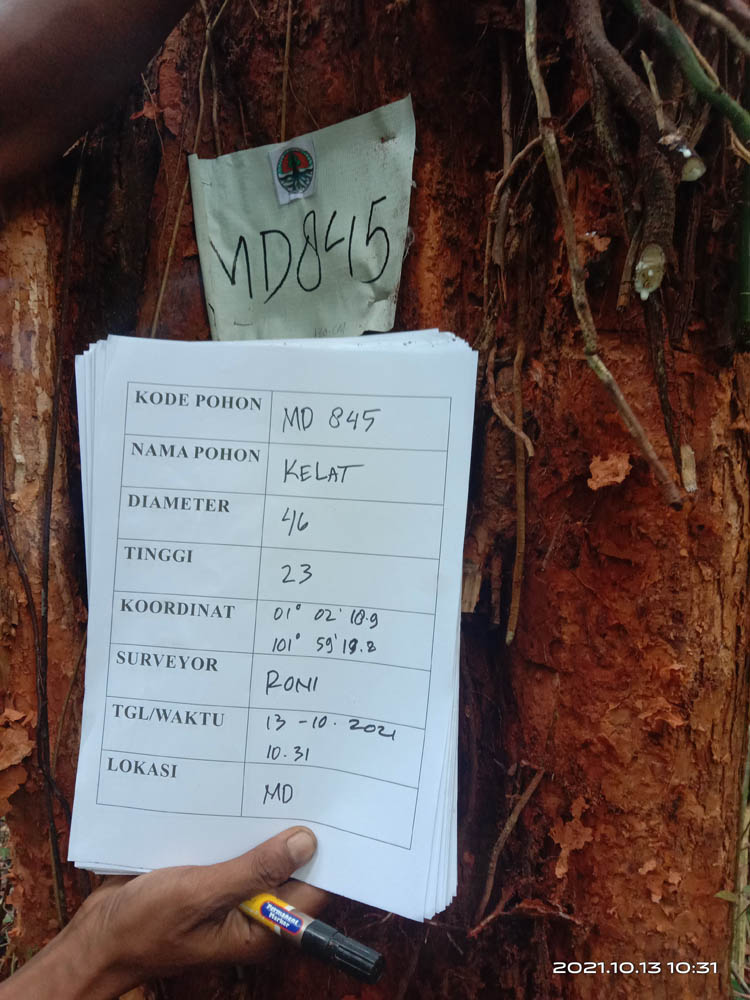 MD845
KODE POHON MD 845
NAMA POHON KELAT
DIAMETER 46
TINGGI 23
KOORDINAT 01° 02' 18.9
101° 59' 18.8
SURVEYOR RONI
TGL/WAKTU 13 -10. 2021
10.31
LOKASI MD
Permanent
Marker
2021.10.13 10:31